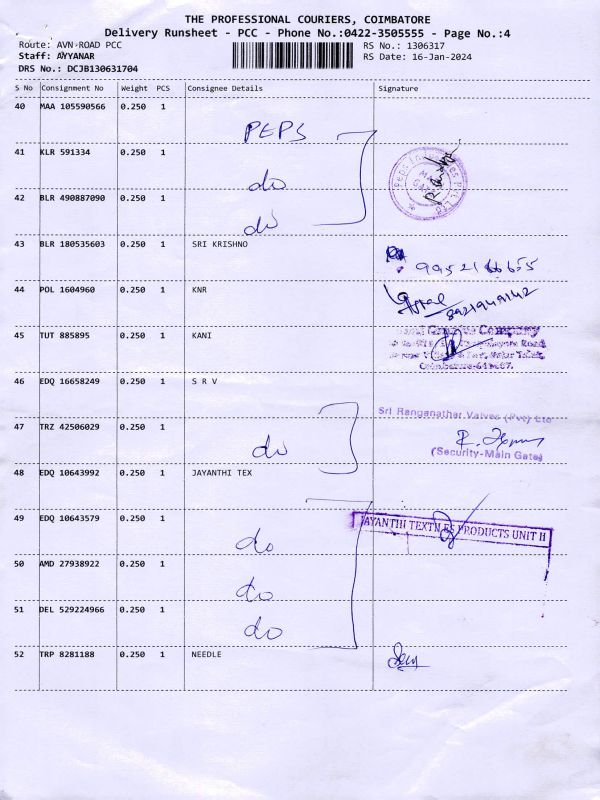 THE PROFESSIONAL COURIERS, COIMBATORE
Delivery Runsheet - PCC - Phone No.:0422-3505555 - Page No.:4
Route: AVN-ROAD PCC RS No.: 1306317
Staff: AYYANAR RS Date: 16-Jan-2024
DRS No.: DCJB130631704
S No Consignment No Weight PCS Consignee Details Signature
40 MAA 105590566 0.250 1
PEPS
41 KLR 591334 0.250 1
do
42 BLR 490887090 0.250 1
do
43 BLR 180535603 0.250 1 SRI KRISHNO
9952166655
44 POL 1604960 0.250 1 KNR
8921949142
45 TUT 885895 0.250 1 KANI
Company
46 EDQ 16658249 0.250 1 S R V
Sri Ranganathar Valves (Pvt) Ltd
47 TRZ 42506029 0.250 1
do
(Security-Main Gate)
48 EDQ 10643992 0.250 1 JAYANTHI TEX
49 EDQ 10643579 0.250 1
JAYANTHI TEXTILES PRODUCTS UNIT II
do
50 AMD 27938922 0.250 1
do
51 DEL 529224966 0.250 1
do
52 TRP 8281188 0.250 1 NEEDLE